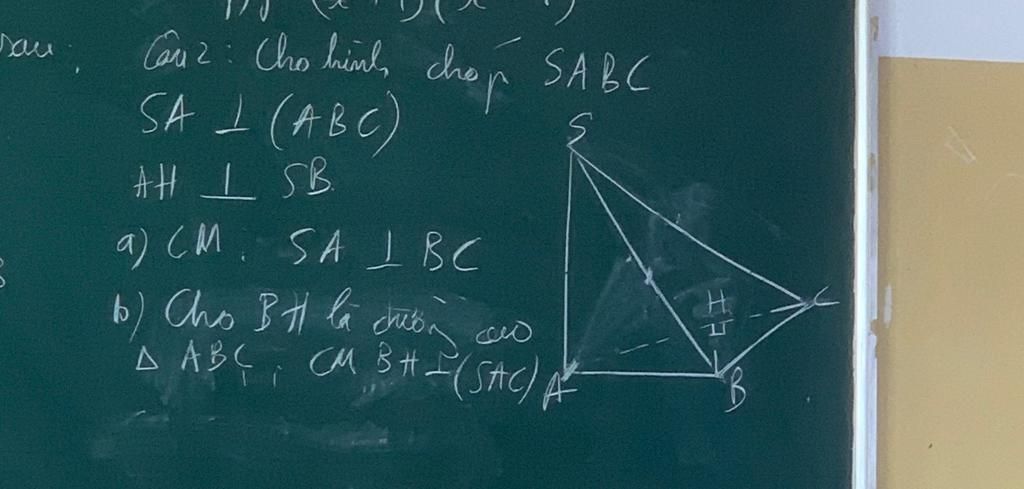 sau:
Câu 2: Cho hình chóp SABC
SA ⊥ (ABC)
AH ⊥ SB
a) CM: SA ⊥ BC
b) Cho BH là đường cao
Δ ABC, CM BH ⊥ (SAC)
S
H
C
A
B